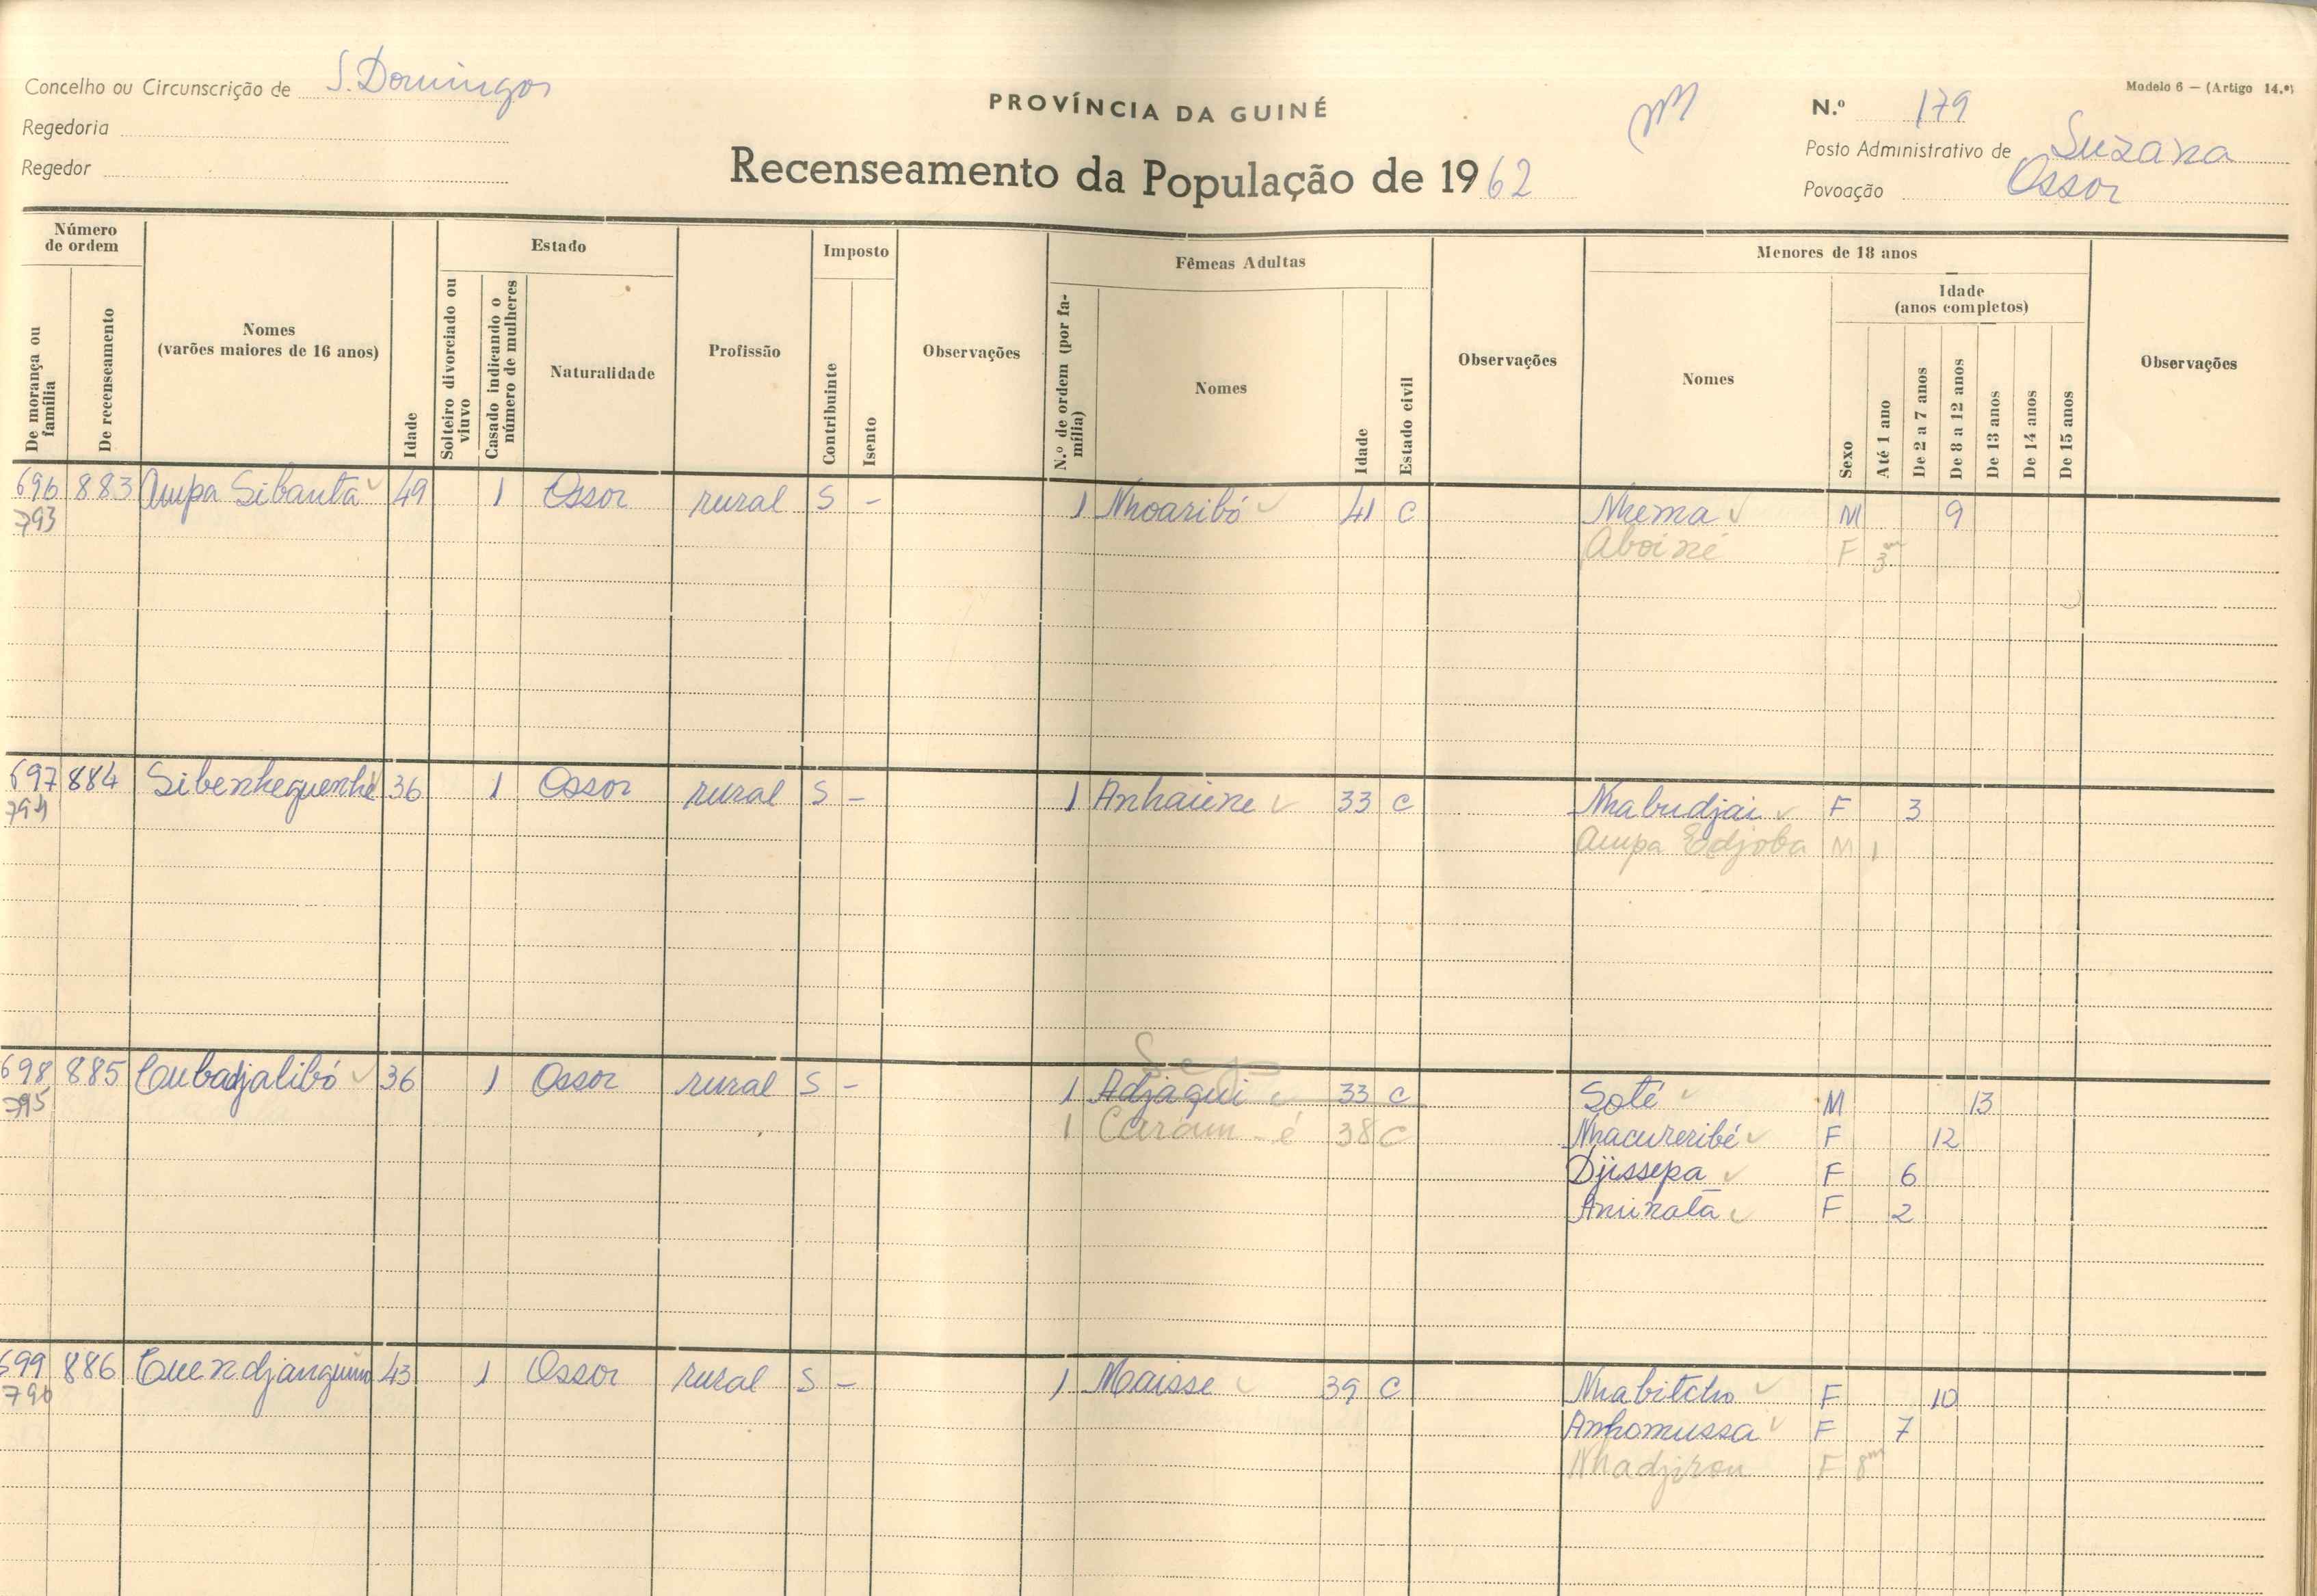 Concelho ou Circunscrição de S. Domingos
Regedoria
Regedor
PROVÍNCIA DA GUINÉ
Recenseamento da População de 1962
Modelo 6 — (Artigo 14.º)
N.º 179
Posto Administrativo de Suzana
Povoação Ossor
Número de ordem
De morança ou família
De recenseamento
Nomes (varões maiores de 16 anos)
Idade
Estado
Solteiro divorciado ou viuvo
Casado indicando o número de mulheres
Naturalidade
Profissão
Imposto
Contribuinte
Isento
Observações
Fêmeas Adultas
N.º de ordem (por família)
Nomes
Idade
Estado civil
Observações
Menores de 18 anos
Nomes
Sexo
Idade (anos completos)
Até 1 ano
De 2 a 7 anos
De 8 a 12 anos
De 13 anos
De 14 anos
De 15 anos
Observações
696 883 Ampa Sibanta 49 1 Ossor rural S - 1 Nhoaribó 41 C Nhema M 9
793 Aboiné F 3m
697 884 Sibenhequenhe 36 1 Ossor rural S - 1 Anhaiene 33 C Nhabudjai F 3
794 Ampa Edjoba M 1
698 885 Cubadjalibó 36 1 Ossor rural S - 1 Adjaqui 33 C Soté M 13
795 1 Caram-é 38 C Nhacureribé F 12
Djissepa F 6
Aninata F 2
699 886 Quendjanguim 43 1 Ossor rural S - 1 Maisse 39 C Nhabitcho F 10
790 Anhomussa F 7
Nhadjirou F 8m